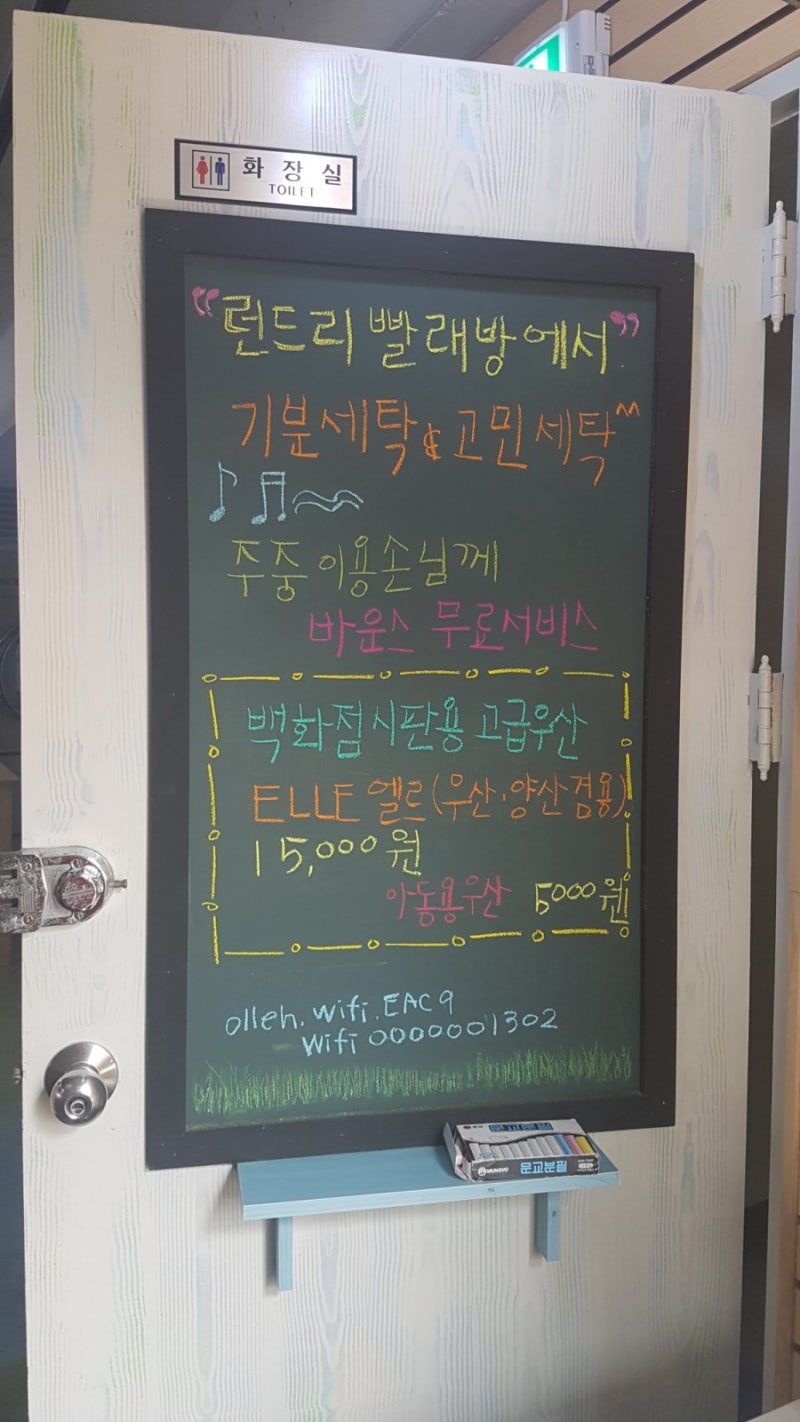 화장실
TOILET
"런드리 빨래방에서"
기분세탁 & 고민세탁^^
주중 이용손님께
바운스 무료서비스
백화점시판용 고급우산
ELLE 엘르(우산·양산겸용)
15,000원
아동용우산 5000원
olleh.wifi.EAC9
wifi 0000001302
문교분필
MUNGYO